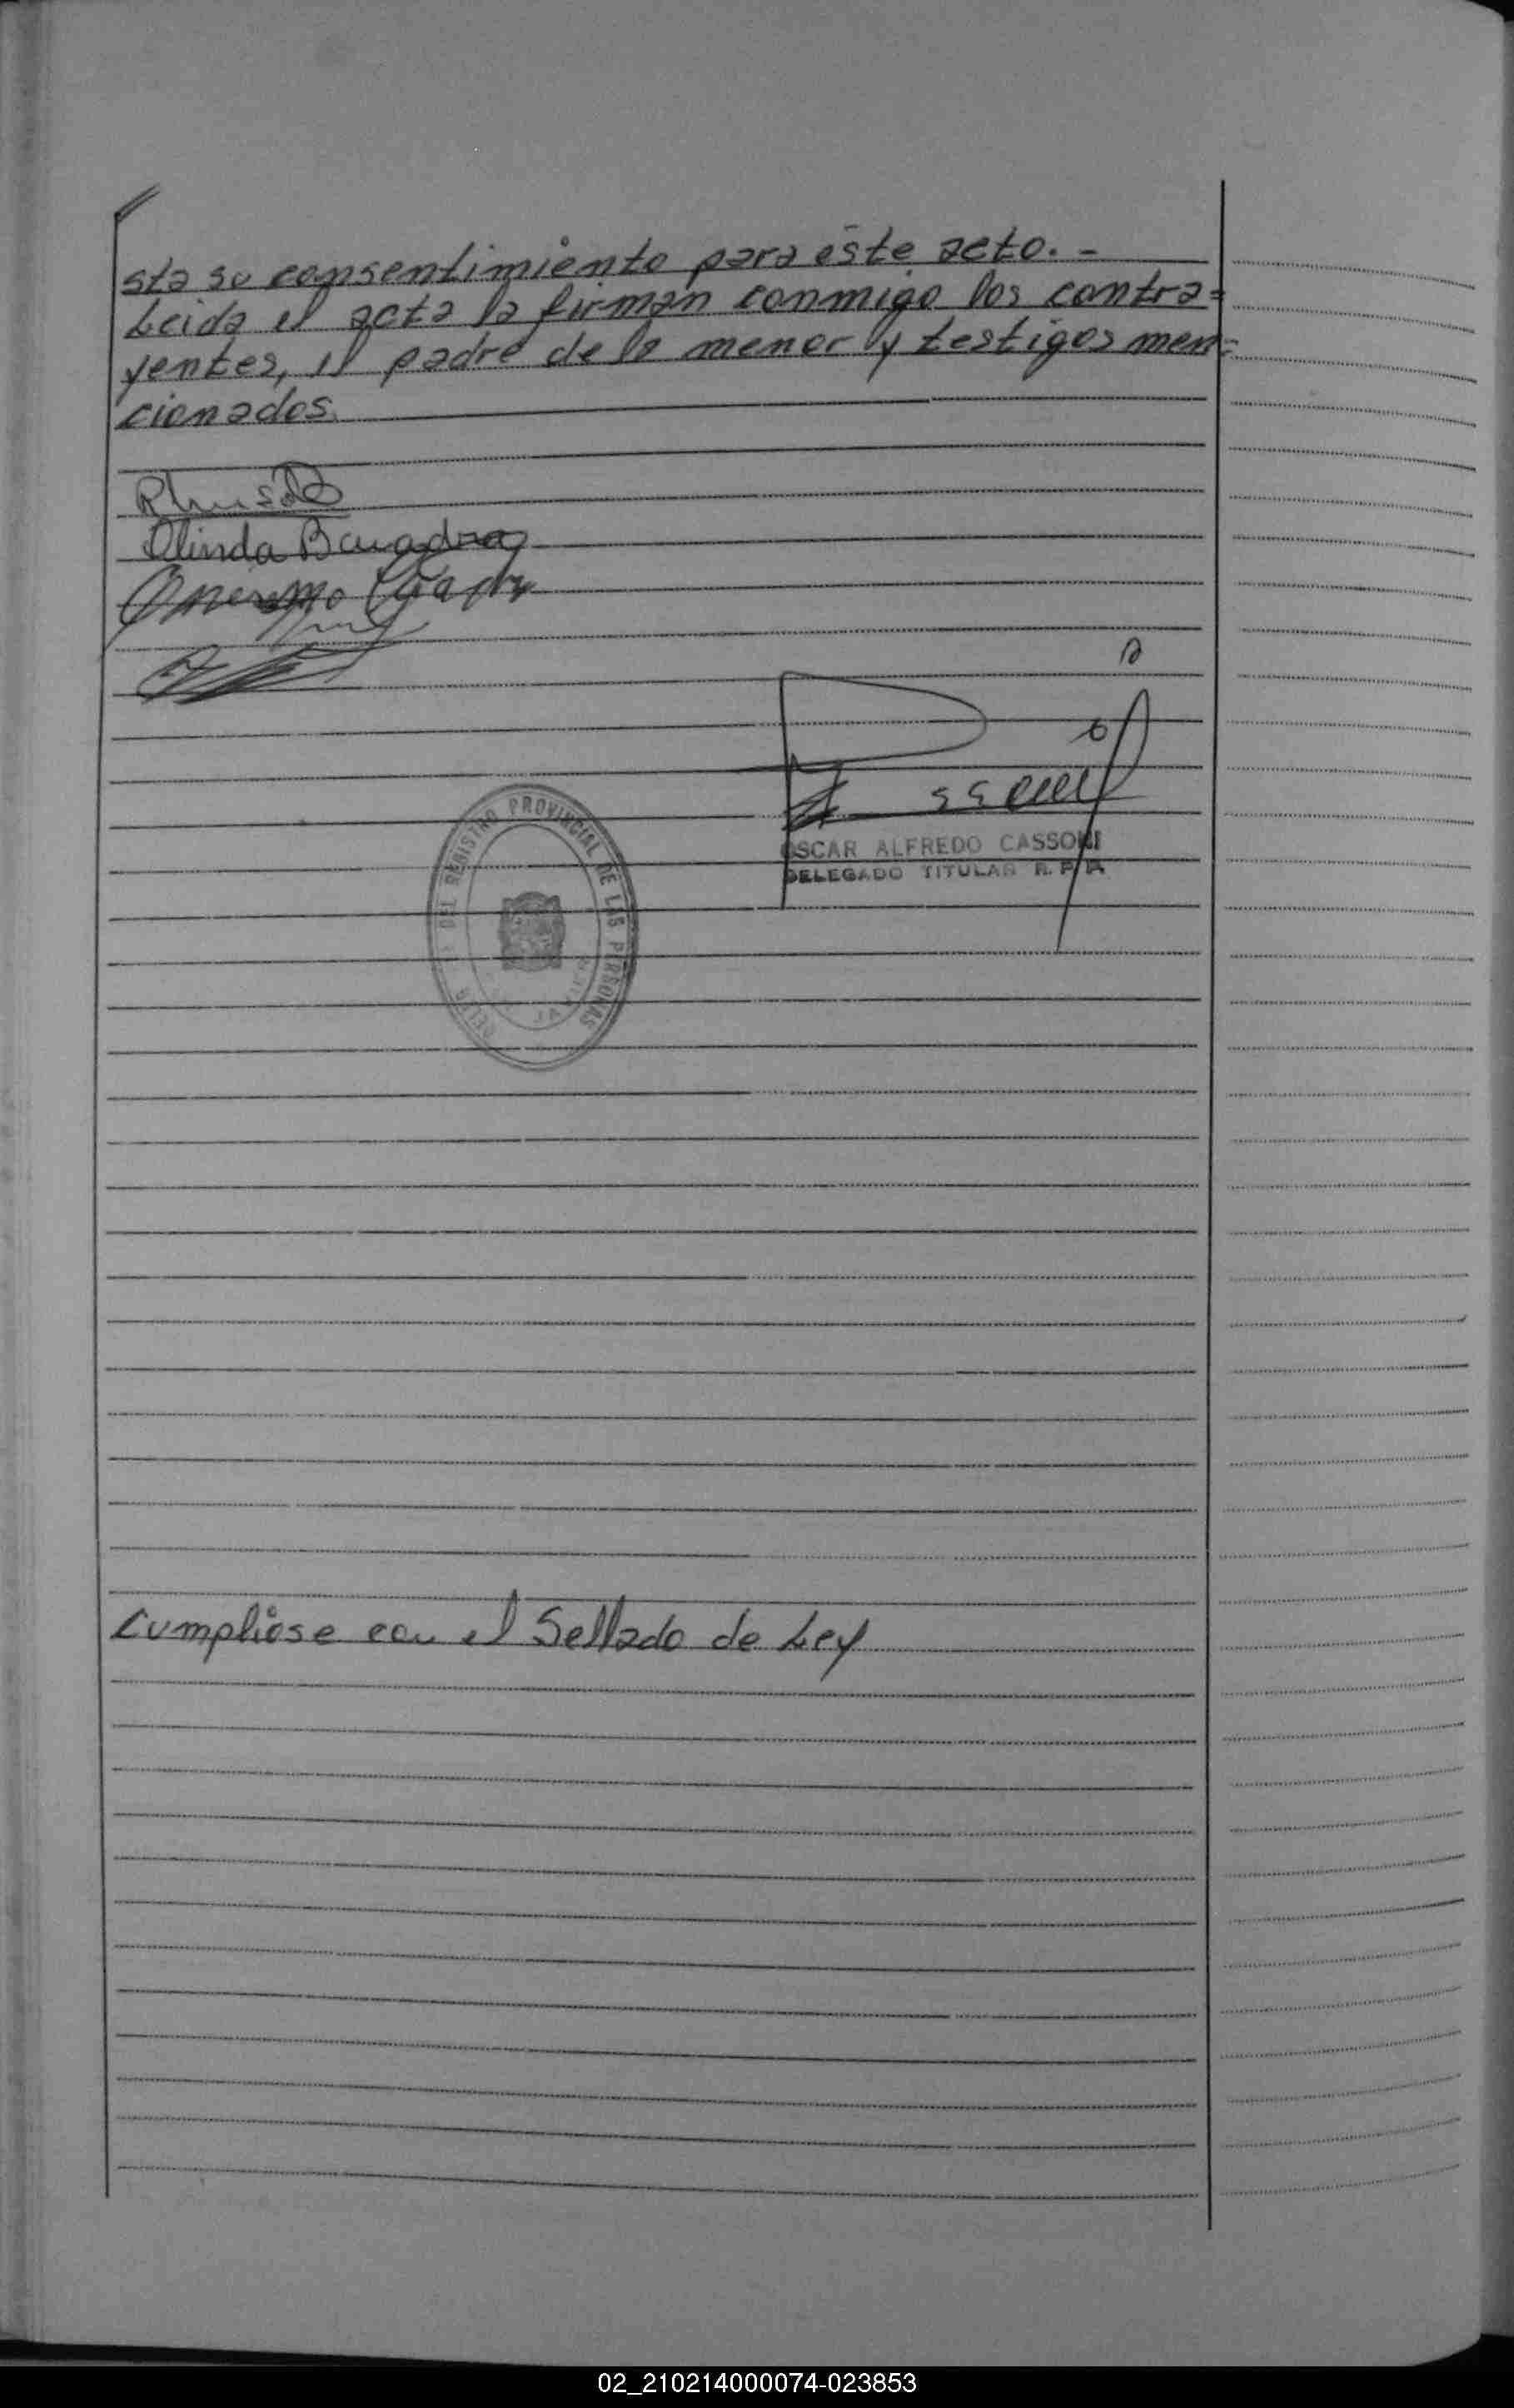 sta su consentimiento para éste acto. -
Leida el acta la firman conmigo los contra=
yentes, el padre de la menor y testigos men=
cionados.
Olinda
OSCAR ALFREDO CASSONI
DELEGADO TITULAR R. P. P.
DEL REGISTRO PROVINCIAL DE LAS PERSONAS
Cumplióse con el Sellado de Ley
02_210214000074-023853